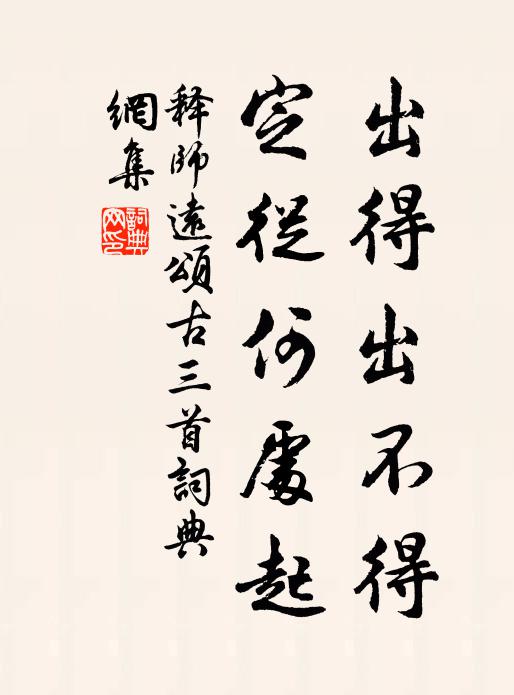 出得出不得
定從何處起
释師遠頌古三首詞典
網集
詞典网印